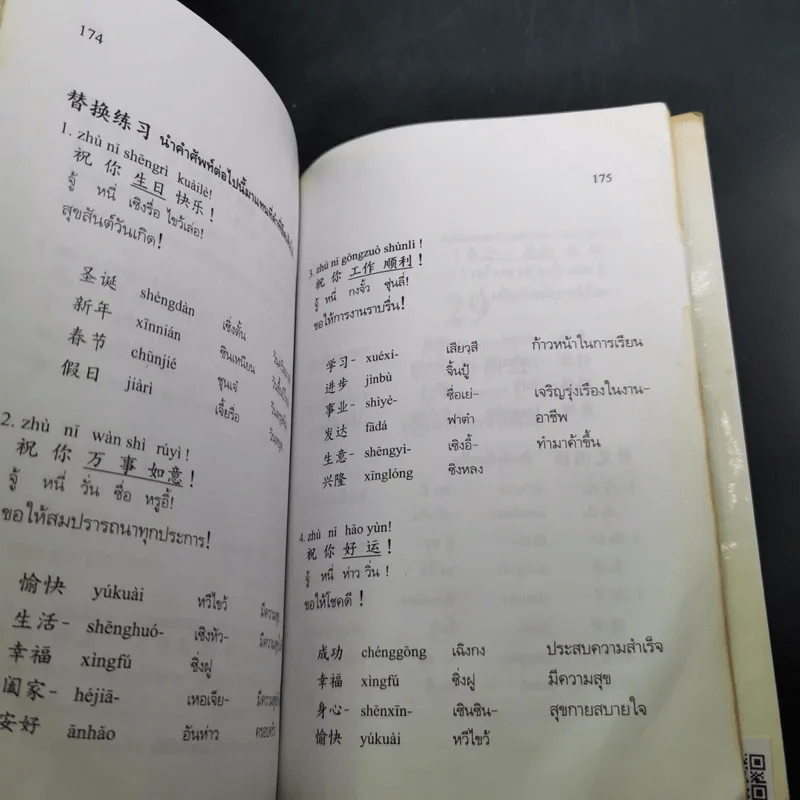 174
替换练习 นำคำศัพท์ต่อไปนี้มาแทนที่คำที่
1. zhù nǐ shēngrì kuàilè!
祝 你 生日 快乐!
จู้ หนี่ เชิงรื่อ ไขว้เล่อ!
สุขสันต์วันเกิด!
圣诞 shèngdàn เชิ่งตั้น
新年 xīnnián ซินเหนียน
春节 chūnjié ชุนเจ๋
假日 jiàrì เจี้ยรื่อ
2. zhù nǐ wàn shì rúyì!
祝 你 万 事 如意!
จู้ หนี่ วั่น ซื่อ หรูอี้!
ขอให้สมปรารถนาทุกประการ!
愉快 yúkuài หวีไขว้
生活- shēnghuó- เชิงหัว-
幸福 xìngfú ซิ่งฝู
阖家- héjiā- เหอเจีย-
安好 ānhǎo อันห่าว
175
3. zhù nǐ gōngzuò shùnlì!
祝 你 工作 顺利!
จู้ หนี่ กงจั้ว ชุ่นลี่!
ขอให้การงานราบรื่น!
学习- xuéxí- เสียวสี ก้าวหน้าในการเรียน
进步 jìnbù จิ้นปู้
事业- shìyè- ซื่อเย่- เจริญรุ่งเรืองในงาน-
发达 fādá ฟาต๋า อาชีพ
生意- shēngyì- เชิงอี้- ทำมาค้าขึ้น
兴隆 xīnglóng ซิงหลง
4. zhù nǐ hǎo yùn!
祝 你 好 运!
จู้ หนี่ ห่าว วิ่น!
ขอให้โชคดี!
成功 chénggōng เฉิงกง ประสบความสำเร็จ
幸福 xìngfú ซิ่งฝู มีความสุข
身心- shēnxīn- เซินซิน- สุขกายสบายใจ
愉快 yúkuài หวีไขว้